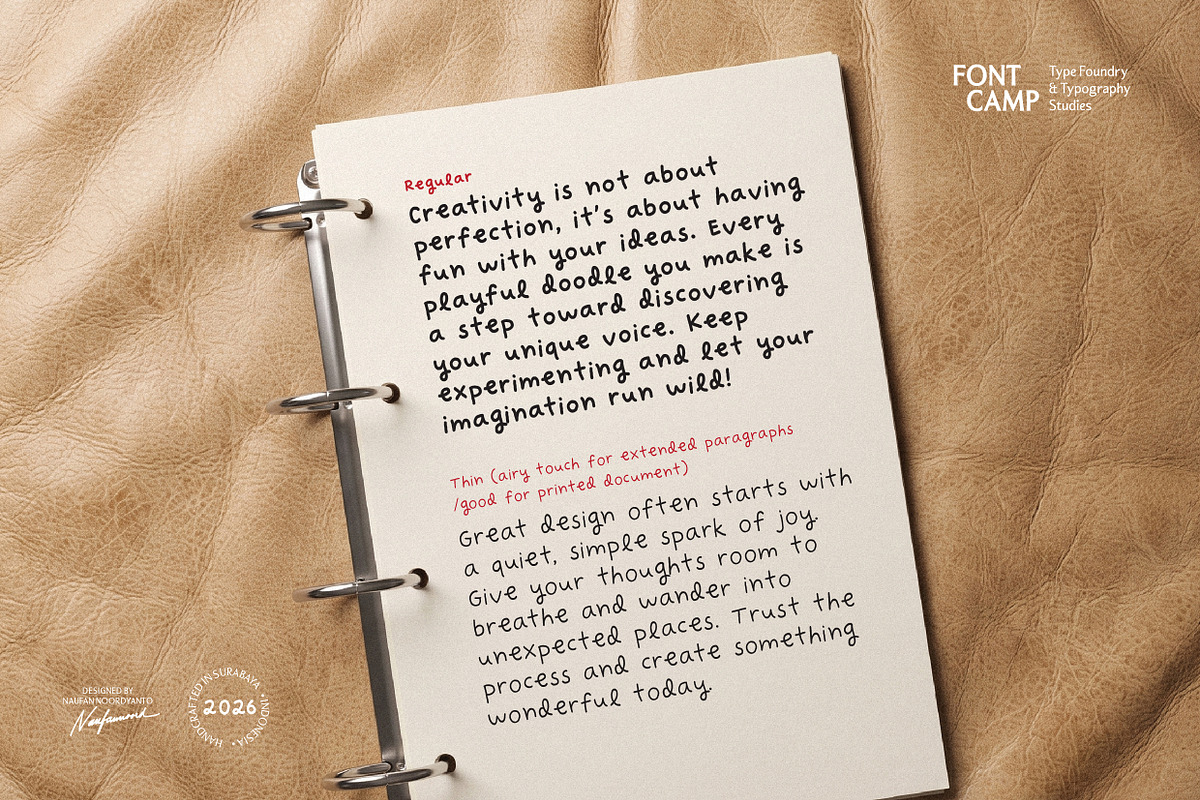 FONT CAMP
Type Foundry
& Typography
Studies
Regular
Creativity is not about
perfection, it's about having
fun with your ideas. Every
playful doodle you make is
a step toward discovering
your unique voice. Keep
experimenting and let your
imagination run wild!
Thin (airy touch for extended paragraphs
/good for printed document)
Great design often starts with
a quiet, simple spark of joy.
Give your thoughts room to
breathe and wander into
unexpected places. Trust the
process and create something
wonderful today.
DESIGNED BY
NAUFAN NOORDYANTO
HANDCRAFTED IN SURABAYA • INDONESIA •
2026